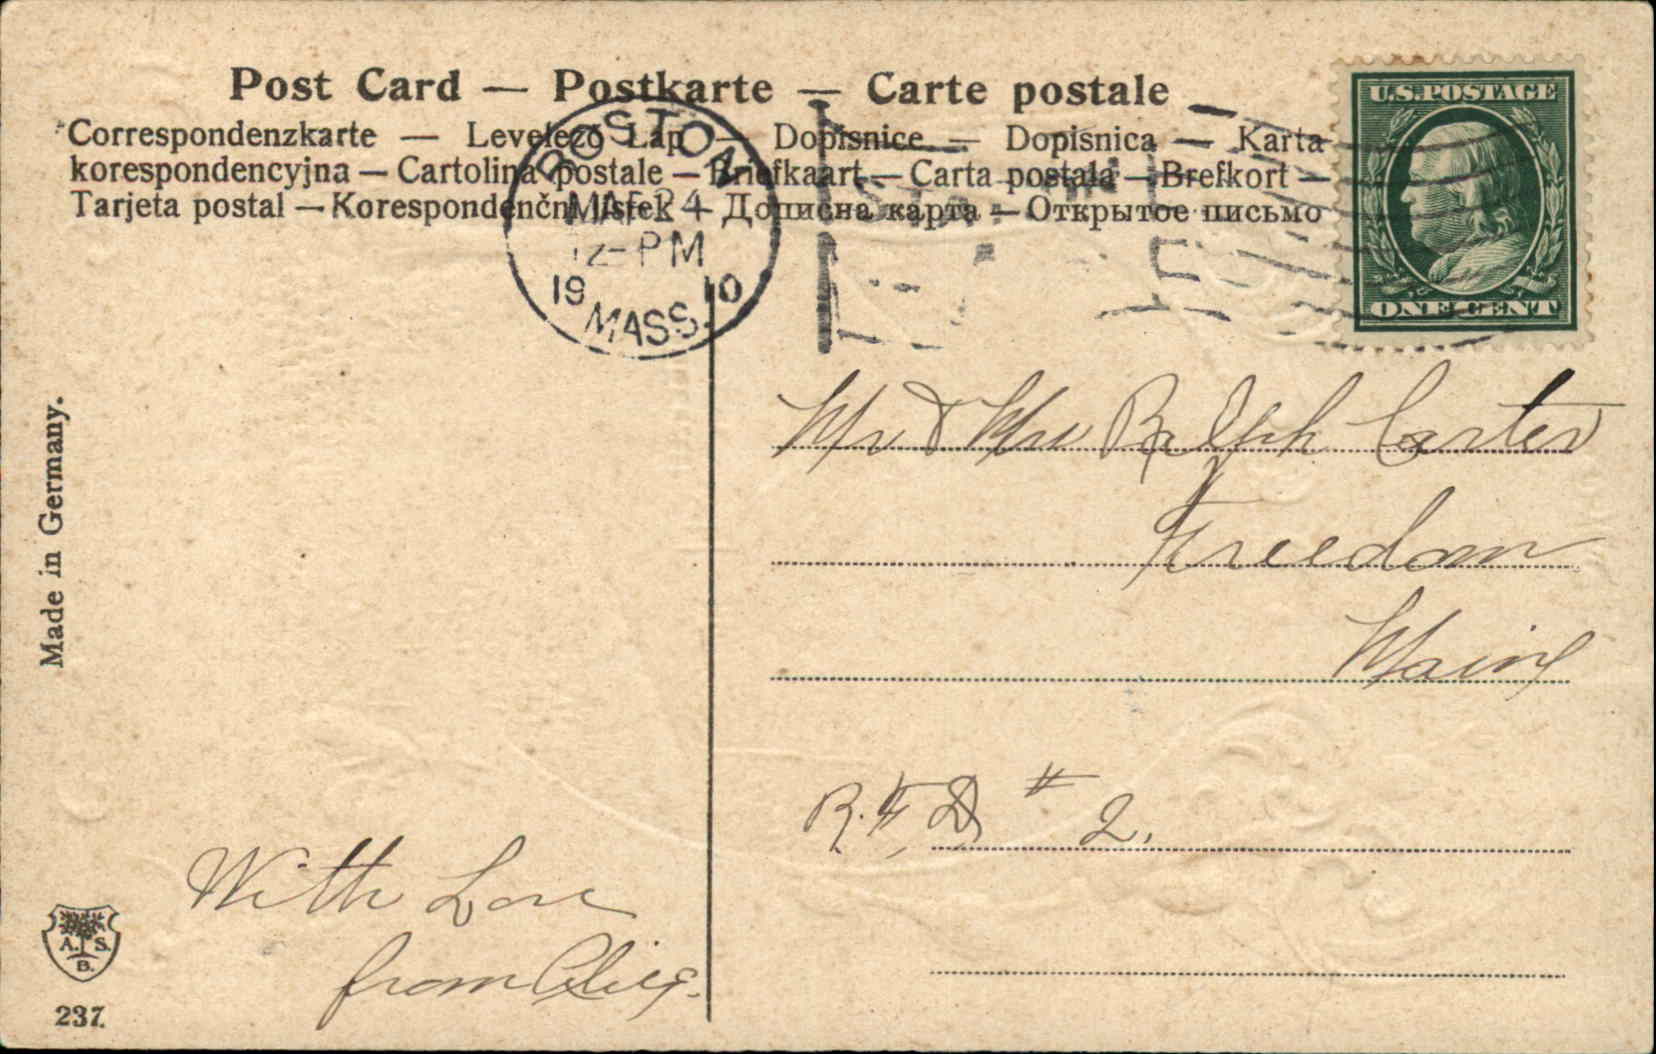 Post Card — Postkarte — Carte postale
Correspondenzkarte — Levelező Lap — Dopisnice — Dopisnica — Karta
korespondencyjna — Cartolina postale — Briefkaart — Carta postala — Brefkort —
Tarjeta postal — Korespondenční lístek — Дописна карта — Открытое письмо
BOSTON
MAR 24
12-PM
1910
MASS.
U.S. POSTAGE
ONE CENT
Mr & Mrs Ralph Carter
Freedom
Maine
R.F.D # 2.
With Love
from Alice.
Made in Germany.
A. S.
B.
237.